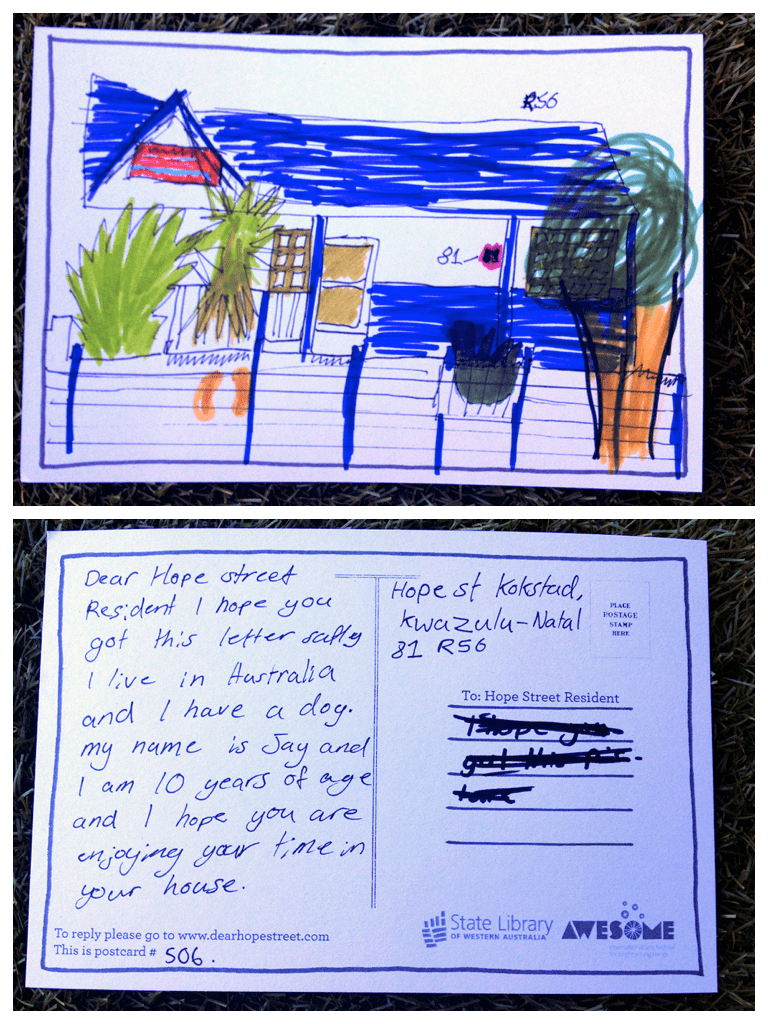 R56
81
Dear Hope street
Resident I hope you
got this letter safly
I live in Australia
and I have a dog.
my name is Jay and
I am 10 years of age
and I hope you are
enjoying your time in
your house.
To reply please go to www.dearhopestreet.com
This is postcard # 506.
Hope st Kokstad,
Kwazulu-Natal
81 R56
PLACE
POSTAGE
STAMP
HERE
To: Hope Street Resident
I hope you
got this
State Library
OF WESTERN AUSTRALIA
AWESOME